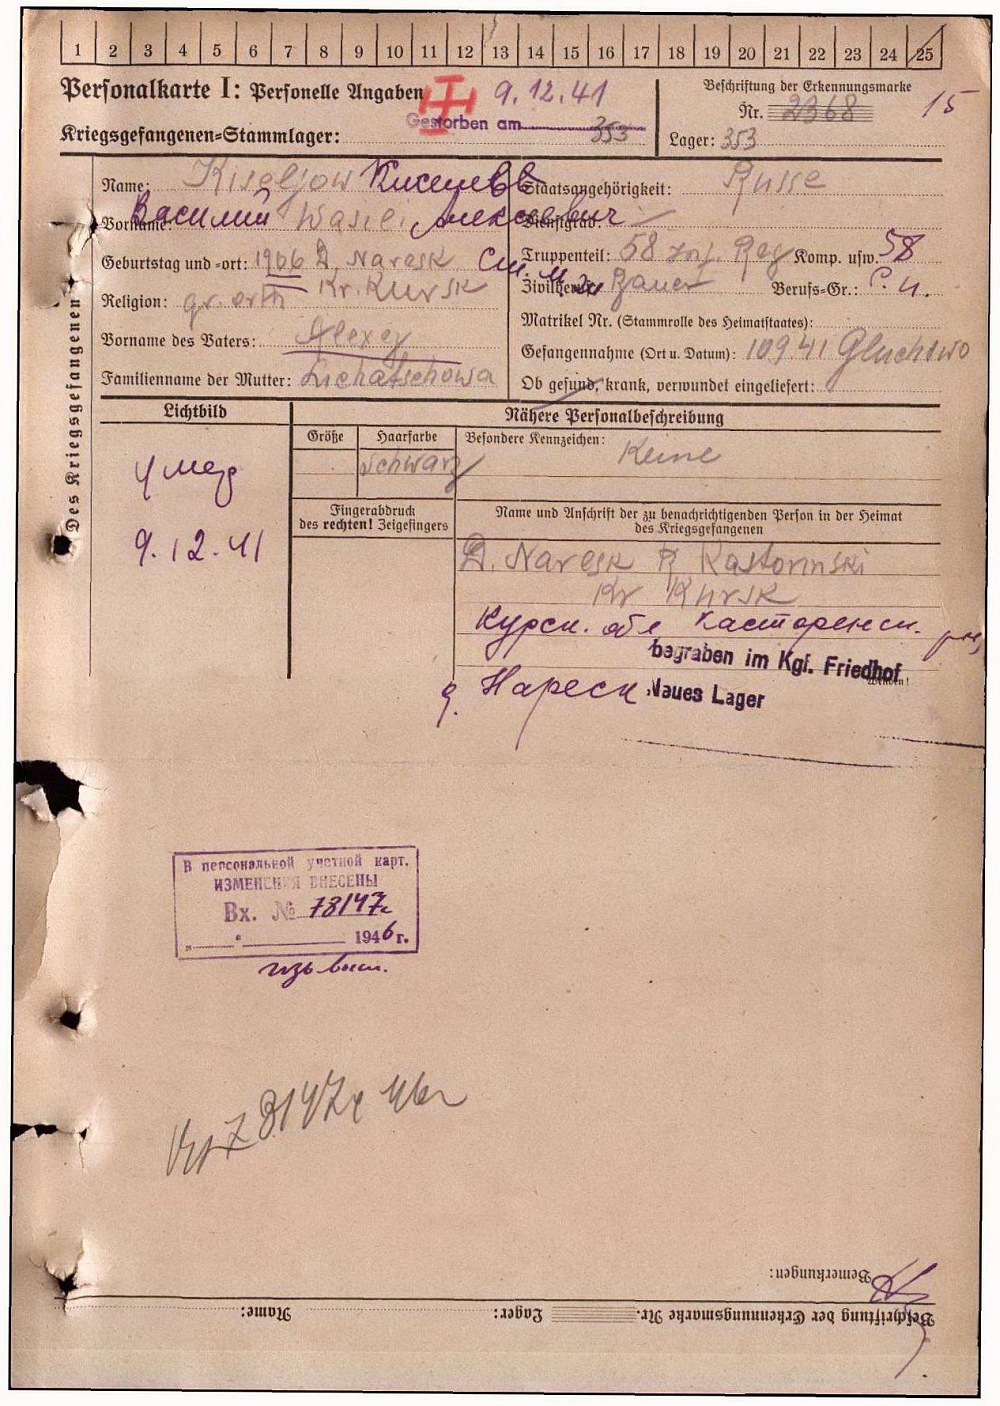 1 2 3 4 5 6 7 8 9 10 11 12 13 14 15 16 17 18 19 20 21 22 23 24 25
Personalkarte I: Personelle Angaben
Gestorben am 9.12.41
Kriegsgefangenen-Stammlager: 353
Beschriftung der Erkennungsmarke
Nr. 2368 15
Lager: 353
Des Kriegsgefangenen
Name: Kiseljow Киселев
Vorname: Василий Wasili Алексеевич
Geburtstag und -ort: 1906 D. Naresk
Kr. Kursk
Religion: gr. orth
Vorname des Vaters: Alexej
Familienname der Mutter: Lichatschowa
Staatsangehörigkeit: Russe
Dienstgrad:
Truppenteil: 58 Inf. Reg Komp. usw. 58
Zivilberuf: Bauer Berufs-Gr.: С. и.
Matrikel Nr. (Stammrolle des Heimatstaates):
Gefangennahme (Ort u. Datum): 10.9.41 Gluchowo
Ob gesund, krank, verwundet eingeliefert:
Lichtbild
Nähere Personalbeschreibung
Größe
Haarfarbe
Schwarz
Besondere Kennzeichen: Keine
Fingerabdruck
des rechten! Zeigefingers
Name und Anschrift der zu benachrichtigenden Person in der Heimat
des Kriegsgefangenen
умер
9.12.41
D. Naresk R Kastorinski
Kr Kursk
Курск. обл Касторенск.
begraben im Kgf. Friedhof
Wenden!
д. Нареск
Neues Lager
В персональной учетной карт.
ИЗМЕНЕНИЯ ВНЕСЕНЫ
Вх. № 78147с
1946 г.
Bemerkungen:
Beschriftung der Erkennungsmarke Nr. Lager: Name: